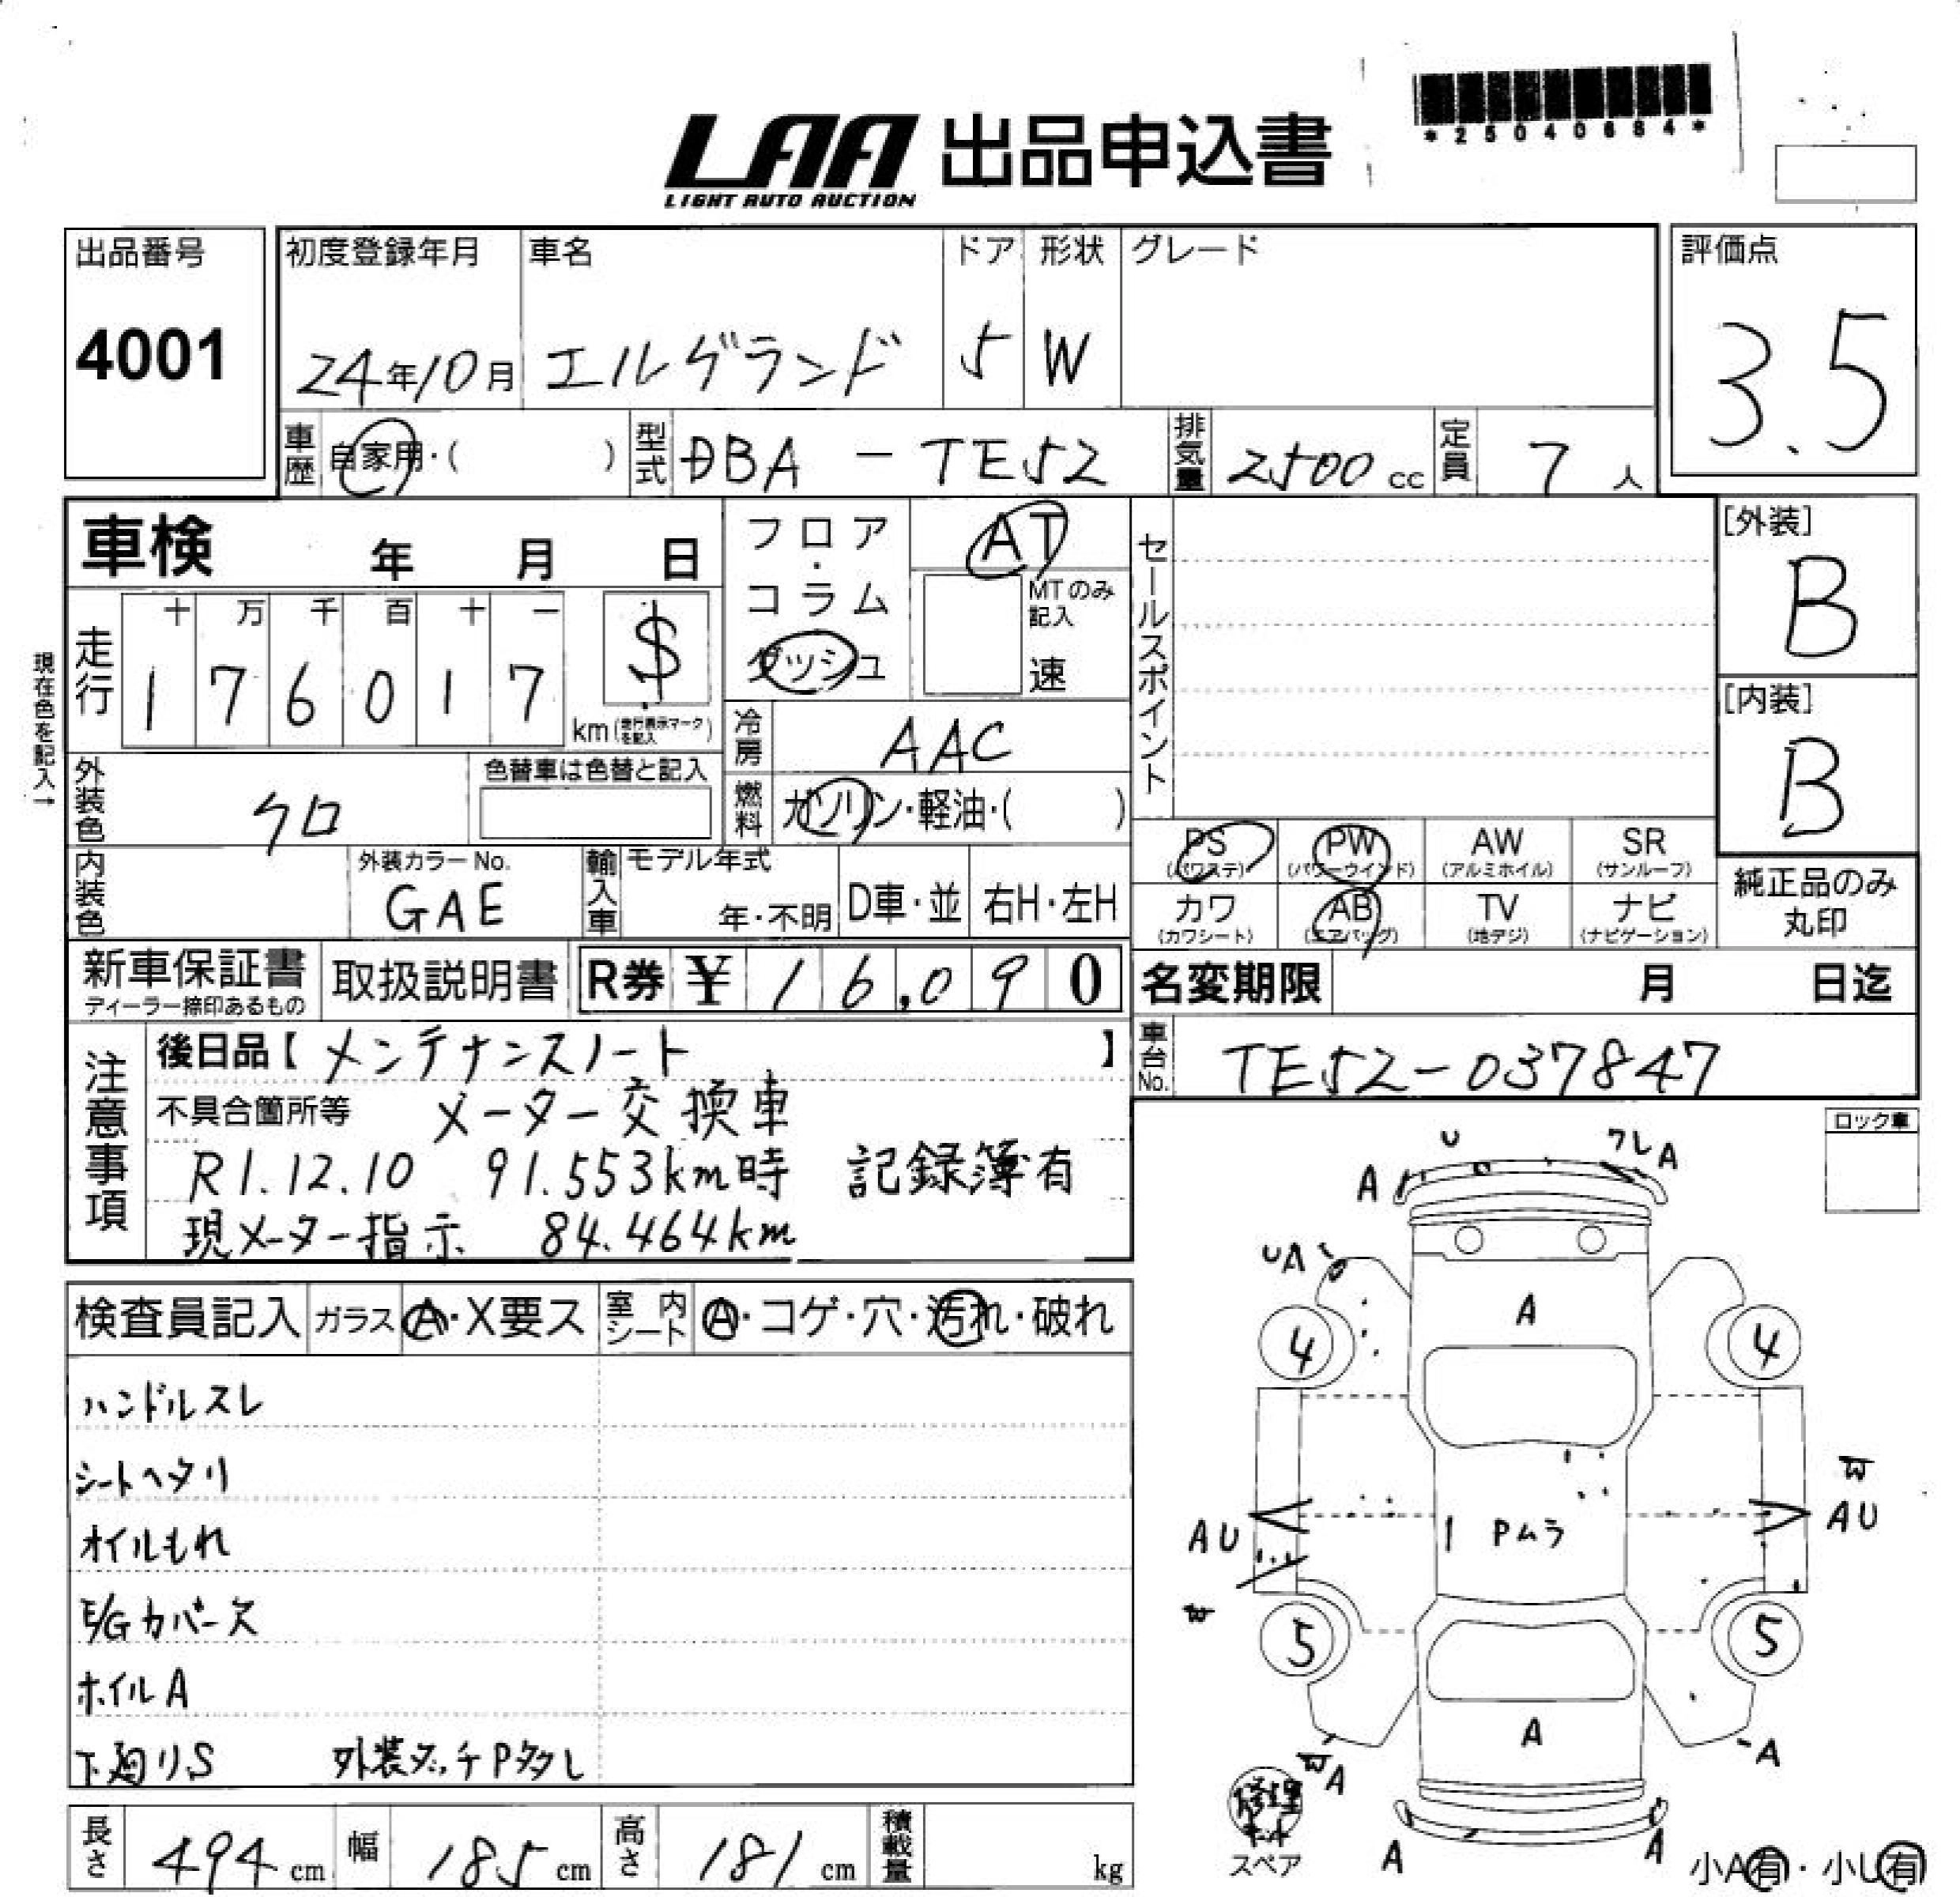 *25040684*
LAA 出品申込書
LIGHT AUTO AUCTION
出品番号 初度登録年月 車名 ドア 形状 グレード 評価点
4001 24年10月 エルグランド 5 W 3.5
車歴 自家用・( ) 型式 DBA - TE52 排気量 2500 cc 定員 7 人
車検 年 月 日 フロア・コラム ダッシュ AT
MTのみ記入 速
セールスポイント
[外装]
B
[内装]
B
現在色を記入→
走行 十 万 千 百 十 一
1 7 6 0 1 7 $
km (走行表示マークを記入)
冷房 AAC
外装色 クロ 色替車は色替と記入
燃料 ガソリン・軽油・( )
内装色 外装カラーNo. GAE 輸入車 モデル年式 年・不明 D車・並 右H・左H
PS (パワステ) PW (パワーウインド) AW (アルミホイル) SR (サンルーフ)
カワ (カワシート) AB (エアバッグ) TV (地デジ) ナビ (ナビゲーション)
純正品のみ丸印
新車保証書 ディーラー捺印あるもの 取扱説明書 R券 ¥ 16,090
名変期限 月 日迄
車台No. TE52-037847
注意事項
後日品【 メンテナンスノート 】
不具合箇所等 メーター交換車
R1.12.10 91.553km時 記録簿有
現メーター指示 84.464km
ロック車
検査員記入 ガラス A・X要ス 室内シート A・コゲ・穴・汚れ・破れ
ハンドルスレ
シートヘタリ
オイルもれ
E/Gカバー欠
ホイルA
下廻りS 外装タッチP多タし
長さ 494 cm 幅 185 cm 高さ 181 cm 積載量 kg
U ワレA
A
UA
A
4 4
AU 1 Pムラ AU
5 5
A
A A
修理キット
スペア
A A
小A有・小U有